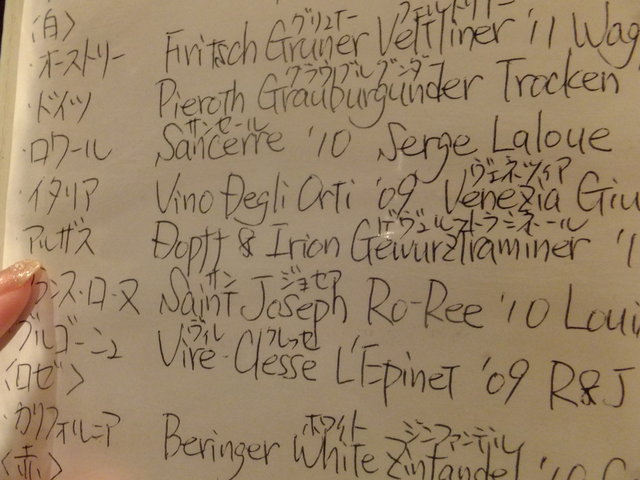 〈白〉
グリュナー フェルトリナー
・オーストリー Firitsch Gruner Veltliner '11 Wag
グラウブルグンダー
・ドイツ Pieroth Grauburgunder Trocken
サンセール
・ロワール Sancerre '10 Serge Laloue
ヴェネツィア
・イタリア Vino Degli Orti '09 Venezia Giu
ゲヴュルストラミネール
アルザス Dopff & Irion Gewurztraminer '1
サン ジョセフ
ランス・ローヌ Saint Joseph Ro-Ree '10 Loui
ヴィレ クレッセ
ブルゴーニュ Vire-Clesse L'Epinet '09 R&J
〈ロゼ〉
ホワイト ジンファンデル
・カリフォルニア Beringer White Zinfandel '10
〈赤〉